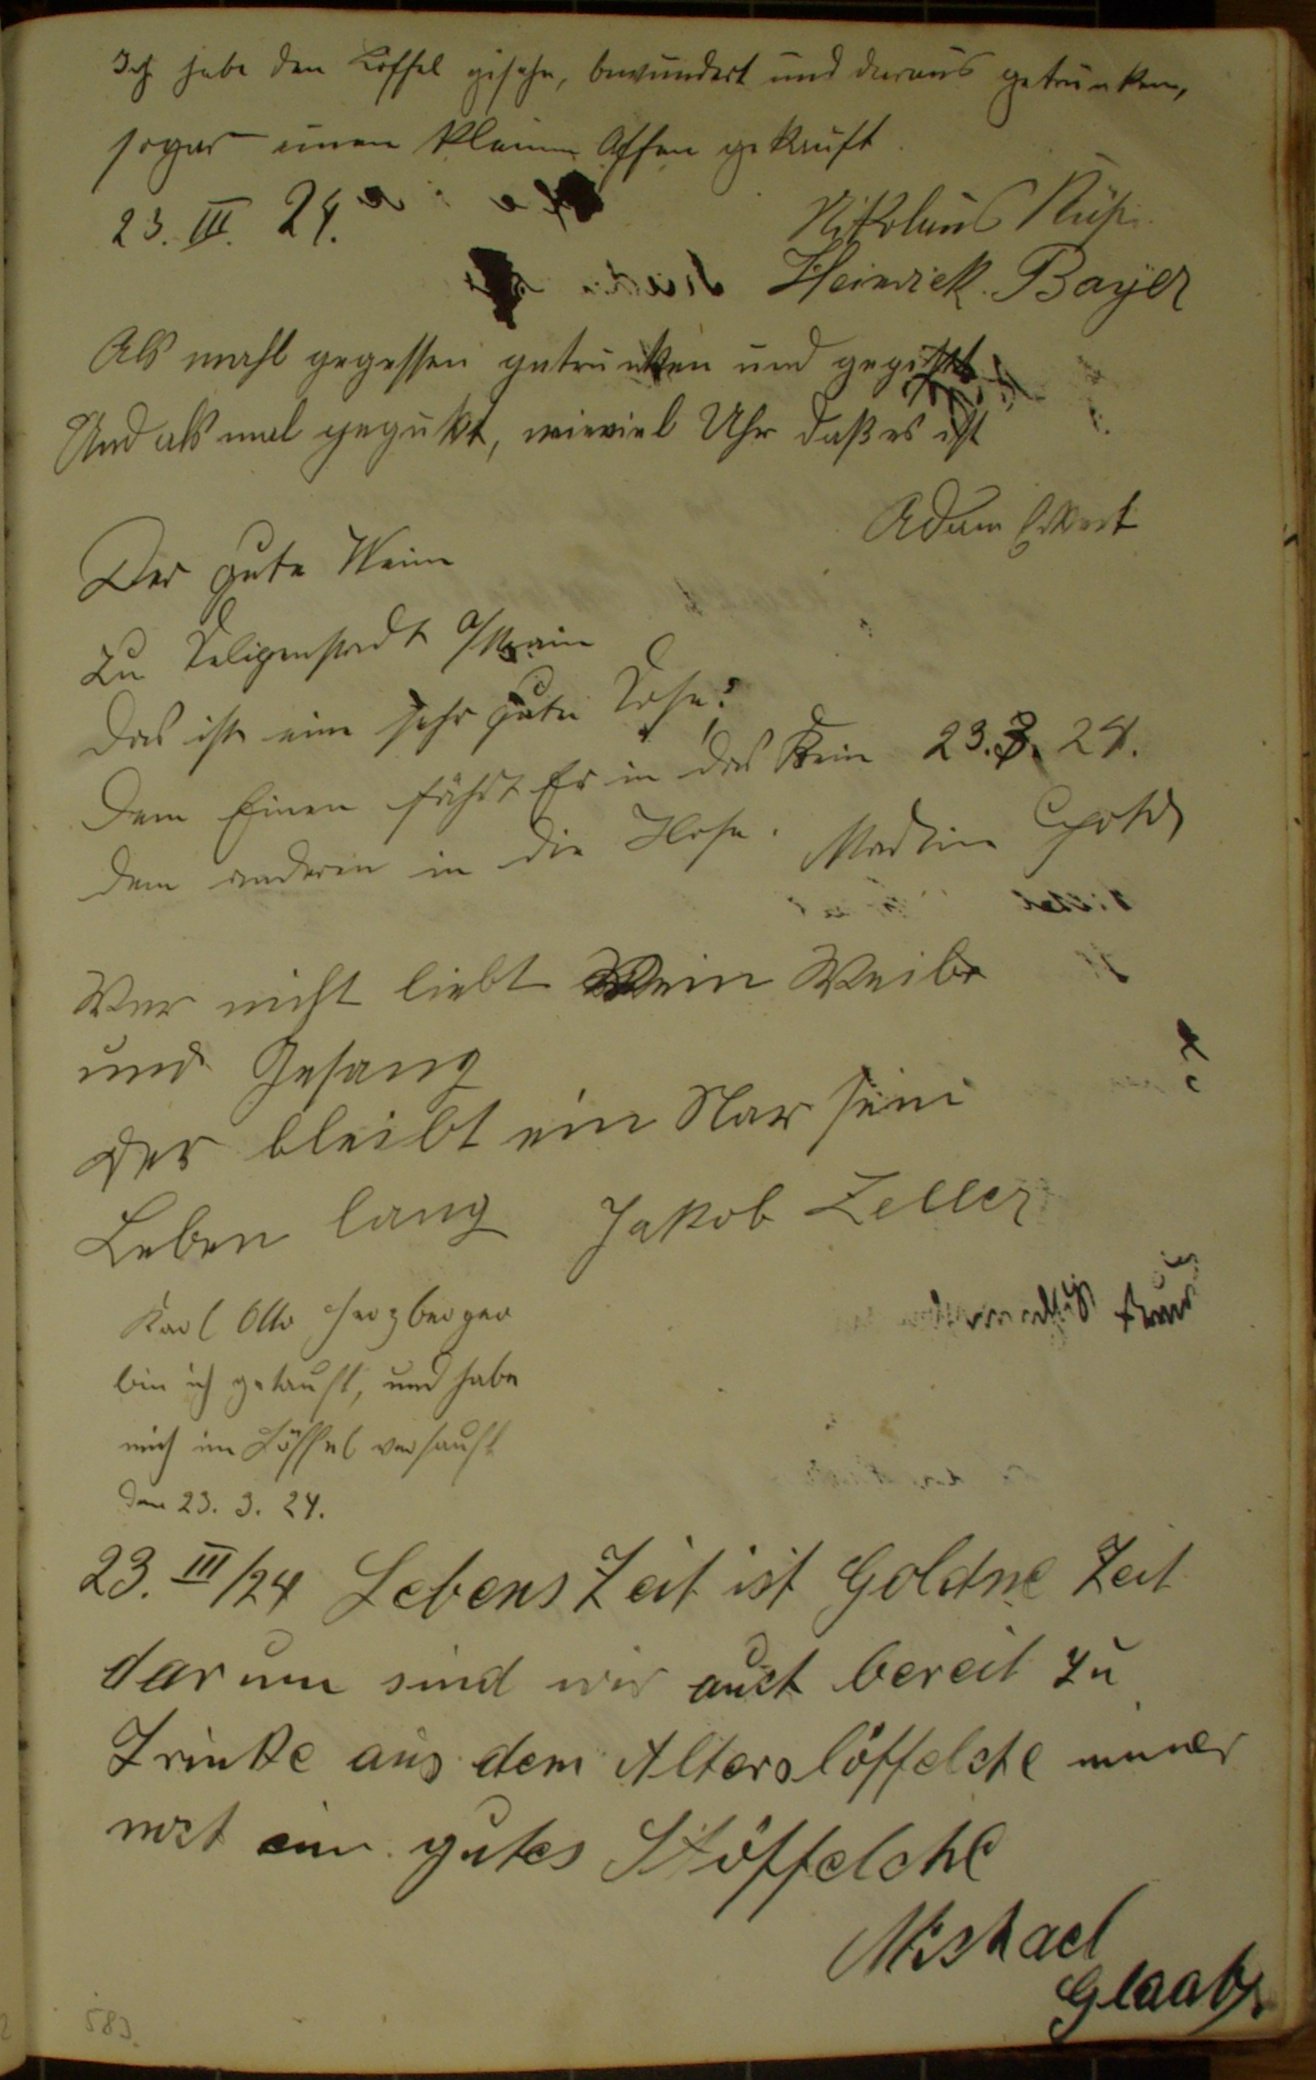 Ich habe den Löffel gesehn, bewundert und daraus getrunken,
sogar einen kleinen Affen gekauft.
23. III. 24.
Nikolaus
Heinrich Bayer
Als mahl gegessen getrunken und
Und als mal gegukt, wieviel Uhr daß es ist
Adam Eckert
Der gute Wein
zu Seligenstadt a/Main
Das ist eine sehr gute Sose:
Dem Einen fährt Er in das Bein 23. 3. 24.
dem anderen in die Hose. Martin
Wer nicht liebt Wein Weibr
und Gesang
der bleibt ein Nar sein
Leben lang Jakob Zeller
Karl Otto Herzberger
bin ich getauft, und habe
mich im Löffel versauft
den 23. 3. 24.
23. III/24 Lebens Zeit ist Goldne Zeit
darum sind wir auch bereit zu
Trinke aus dem Alterslöffelche immer
mit ein gutes Stöffelche
Michael
Glaab
583.